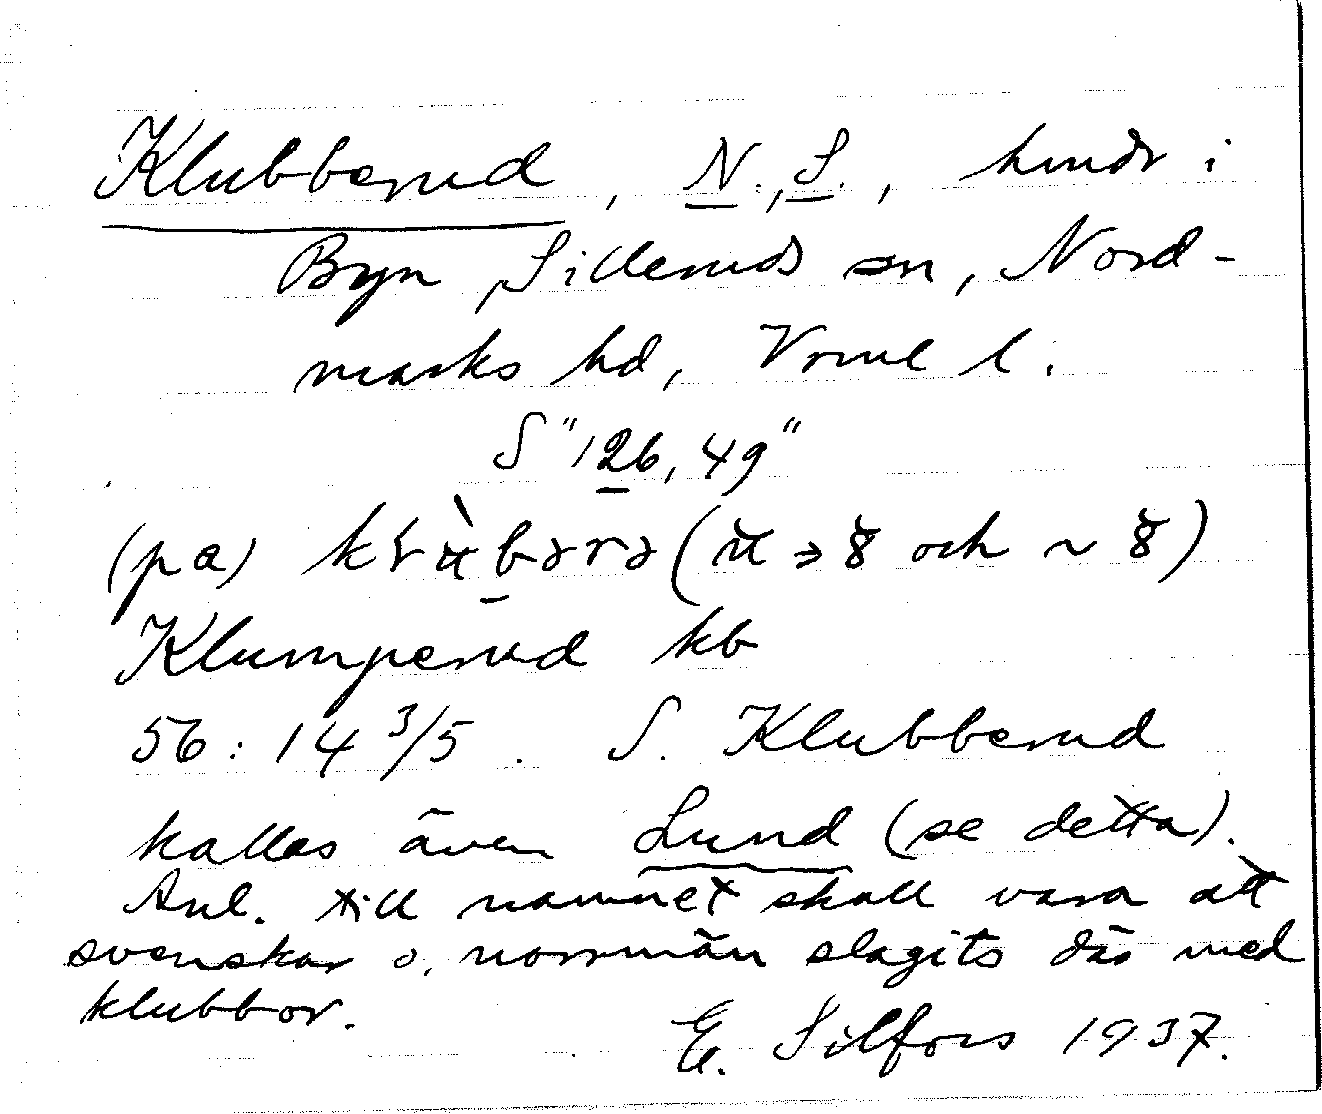 Klubberud, N., S., hmdr i
Byn, Silleruds sn, Nord-
marks hd, Vrml l.
S "126,49"
(pa)
Klumperud kb
56:14 3/5. S. Klubberud
kallas även Lund (se detta).
Anl. till namnet skall vara att
svenskar o. norrmän slagits där med
klubbor.
E. Silfors 1937.